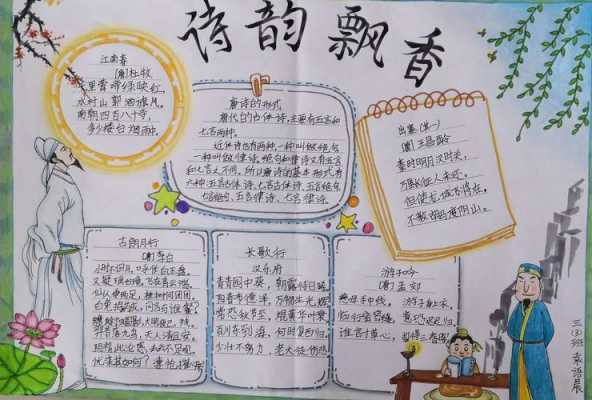 诗韵飘香
江南春
(唐)杜牧
千里莺啼绿映红,
水村山郭酒旗风。
南朝四百八十寺,
多少楼台烟雨中。
唐诗的形式
唐代的古体诗,主要有五言和
七言两种。
近体诗也有两种,一种叫做绝句
一种叫做律诗。绝句和律诗又有五言
和七言之不同。所以唐诗的基本形式有
六种:五言古体诗,七言古体诗,五言绝句
七言绝句,五言律诗,七言律诗。
出塞(其一)
(唐)王昌龄
秦时明月汉时关,
万里长征人未还。
但使龙城飞将在,
不教胡马度阴山。
古朗月行
(唐)李白
小时不识月,呼作白玉盘。
又疑瑶台镜,飞在青云端。
仙人垂两足,桂树何团团。
白兔捣药成,问言与谁餐?
长歌行
汉乐府
青青园中葵,朝露待日晞。
阳春布德泽,万物生光辉。
常恐秋节至,焜黄华叶衰。
百川东到海,何时复西归。
少壮不努力,老大徒伤悲
游子吟
(唐)孟郊
慈母手中线,游子身上衣。
临行密密缝,意恐迟迟归。
谁言寸草心,报得三春晖。
三(3)班 袁语晨